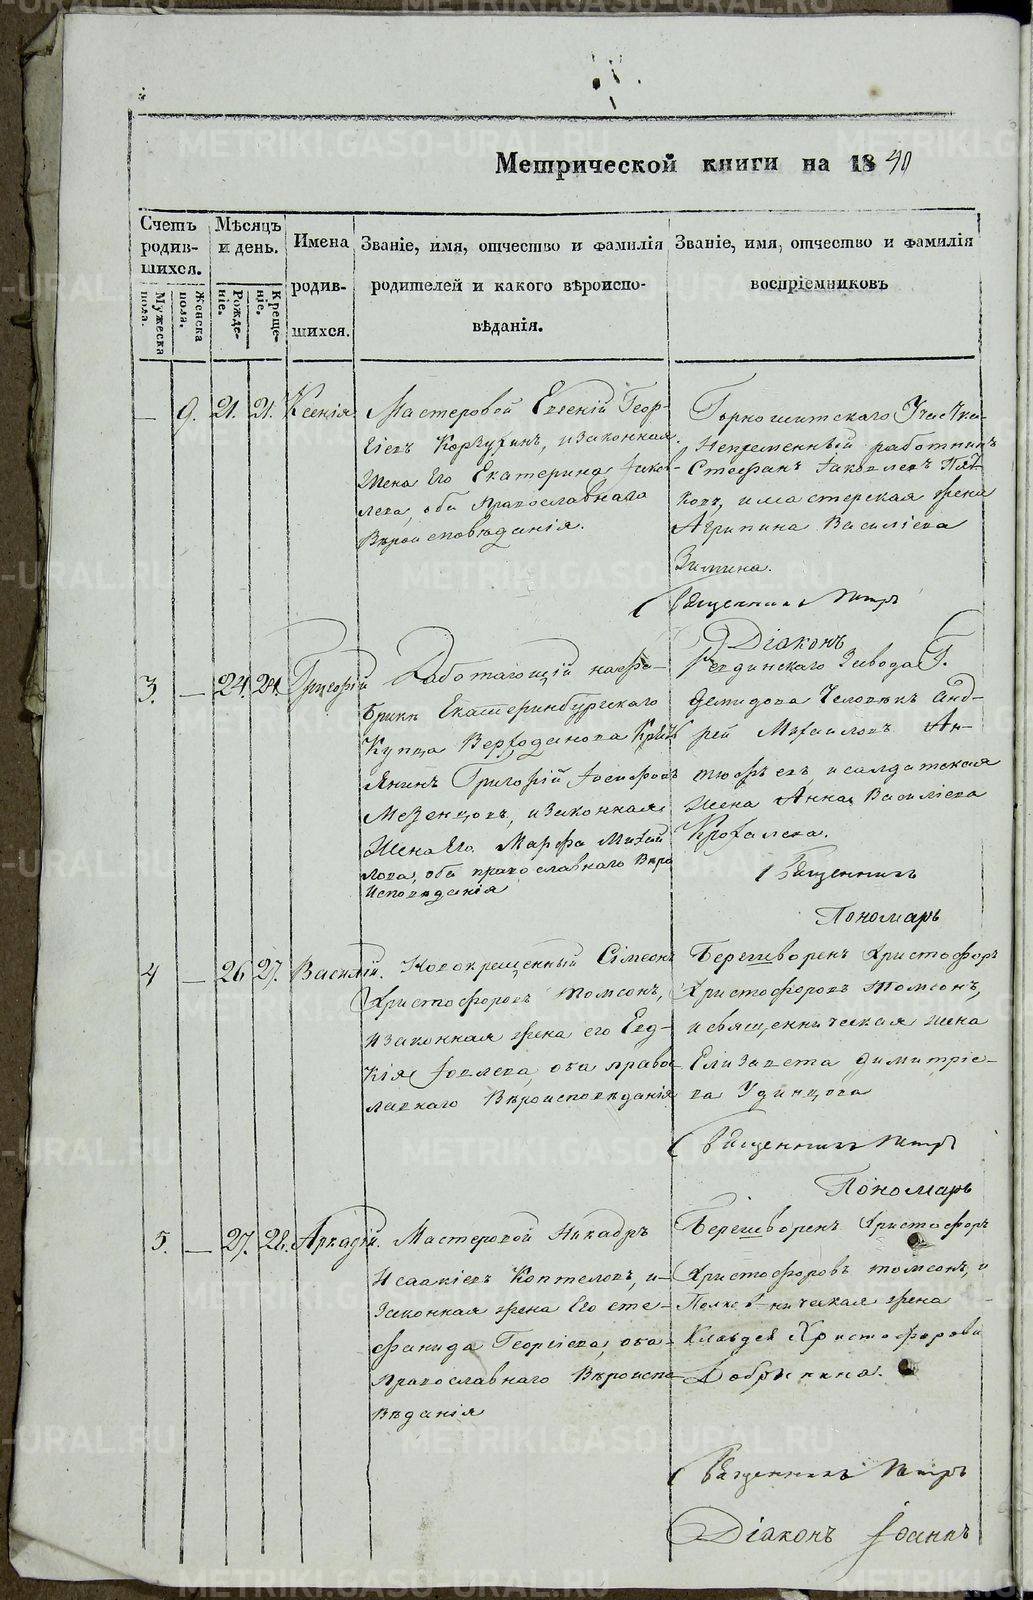 Метрической книги на 1840
Счетъ родив-шихся.
Мужеска пола.
Женска пола.
Мѣсяцъ и день.
Рожде-ніе.
Креще-ніе.
Имена
родив-
шихся.
Званіе, имя, отчество и фамилія
родителей и какого вѣроиспо-
вѣданія.
Званіе, имя, отчество и фамилія
воспріемниковъ
— 9. 21. 21. Ксенія
Мастеровой Евгеній Геор-
гіевъ Корзухинъ, и законная
жена его Екатерина Іаков-
лева, оба православнаго
Вѣроисповѣданія.
Горнощитскаго Участка
Непременный работникъ
Стефанъ Іаковлевъ
и мастерская жена
Агрипина Василіева
Зимина.
Священникъ Петръ
Діаконъ
3. — 24. 24. Григорій
Работающій на фа-
брике Екатеринбургскаго
Купца Верходанова
Григорій Іосифовъ
Мезенцовъ, и законная
жена его Марфа Михай
лова, оба православнаго Вѣро
Исповѣданія
Ревдинскаго Завода Г.
Демидова Человѣкъ Анд-
рей Михаиловъ Ан-
и салдатская
жена Анна Василіева
Крохалева.
Священникъ
Пономарь
4 — 26 27. Василій.
Новокрещенный Сімеонъ
Христофоровъ Томсонъ,
и законная жена его Евд-
кія Іовлева, оба право-
лавнаго Вѣроисповѣданія
Берегшворенъ Христофоръ
Христофоровъ Томсонъ,
и священническая жена
Елизавета Димитріе-
ва Удинцова
Священникъ Петръ
Пономарь
5. — 27. 28. Аркадій.
Мастеровой Никадръ
Исаакіевъ Коптеловъ, и-
Законная жена его сте-
фанида Георгіева, оба-
православнаго Вѣроиспо-
Вѣданія
Берегшворенъ Христофоръ
Христофоровъ Томсонъ, и
жена
Клавдея Христофорова
Добрынина.
Священникъ Петръ
Діаконъ Іоаннъ
METRIKI.GASO-URAL.RU